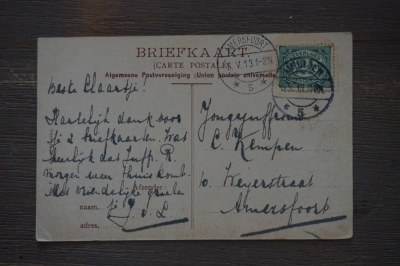 BRIEFKAART.
(CARTE POSTALE)
Algemeene Postvereeniging (Union postale universelle)
AMERSFOORT
V.13.1-2N
5
NEDERLAND
5
Beste Claartje!
Hartelijk dank voor
je 2 briefkaarten. Wat
heerlijk dat Juff. R.
morgen weer thuis komt.
Met vriendelijke groeten
Afzender:
naam,
adres,
Jongejuffrouw
C. Kempen
Weyerstraat
Amersfoort